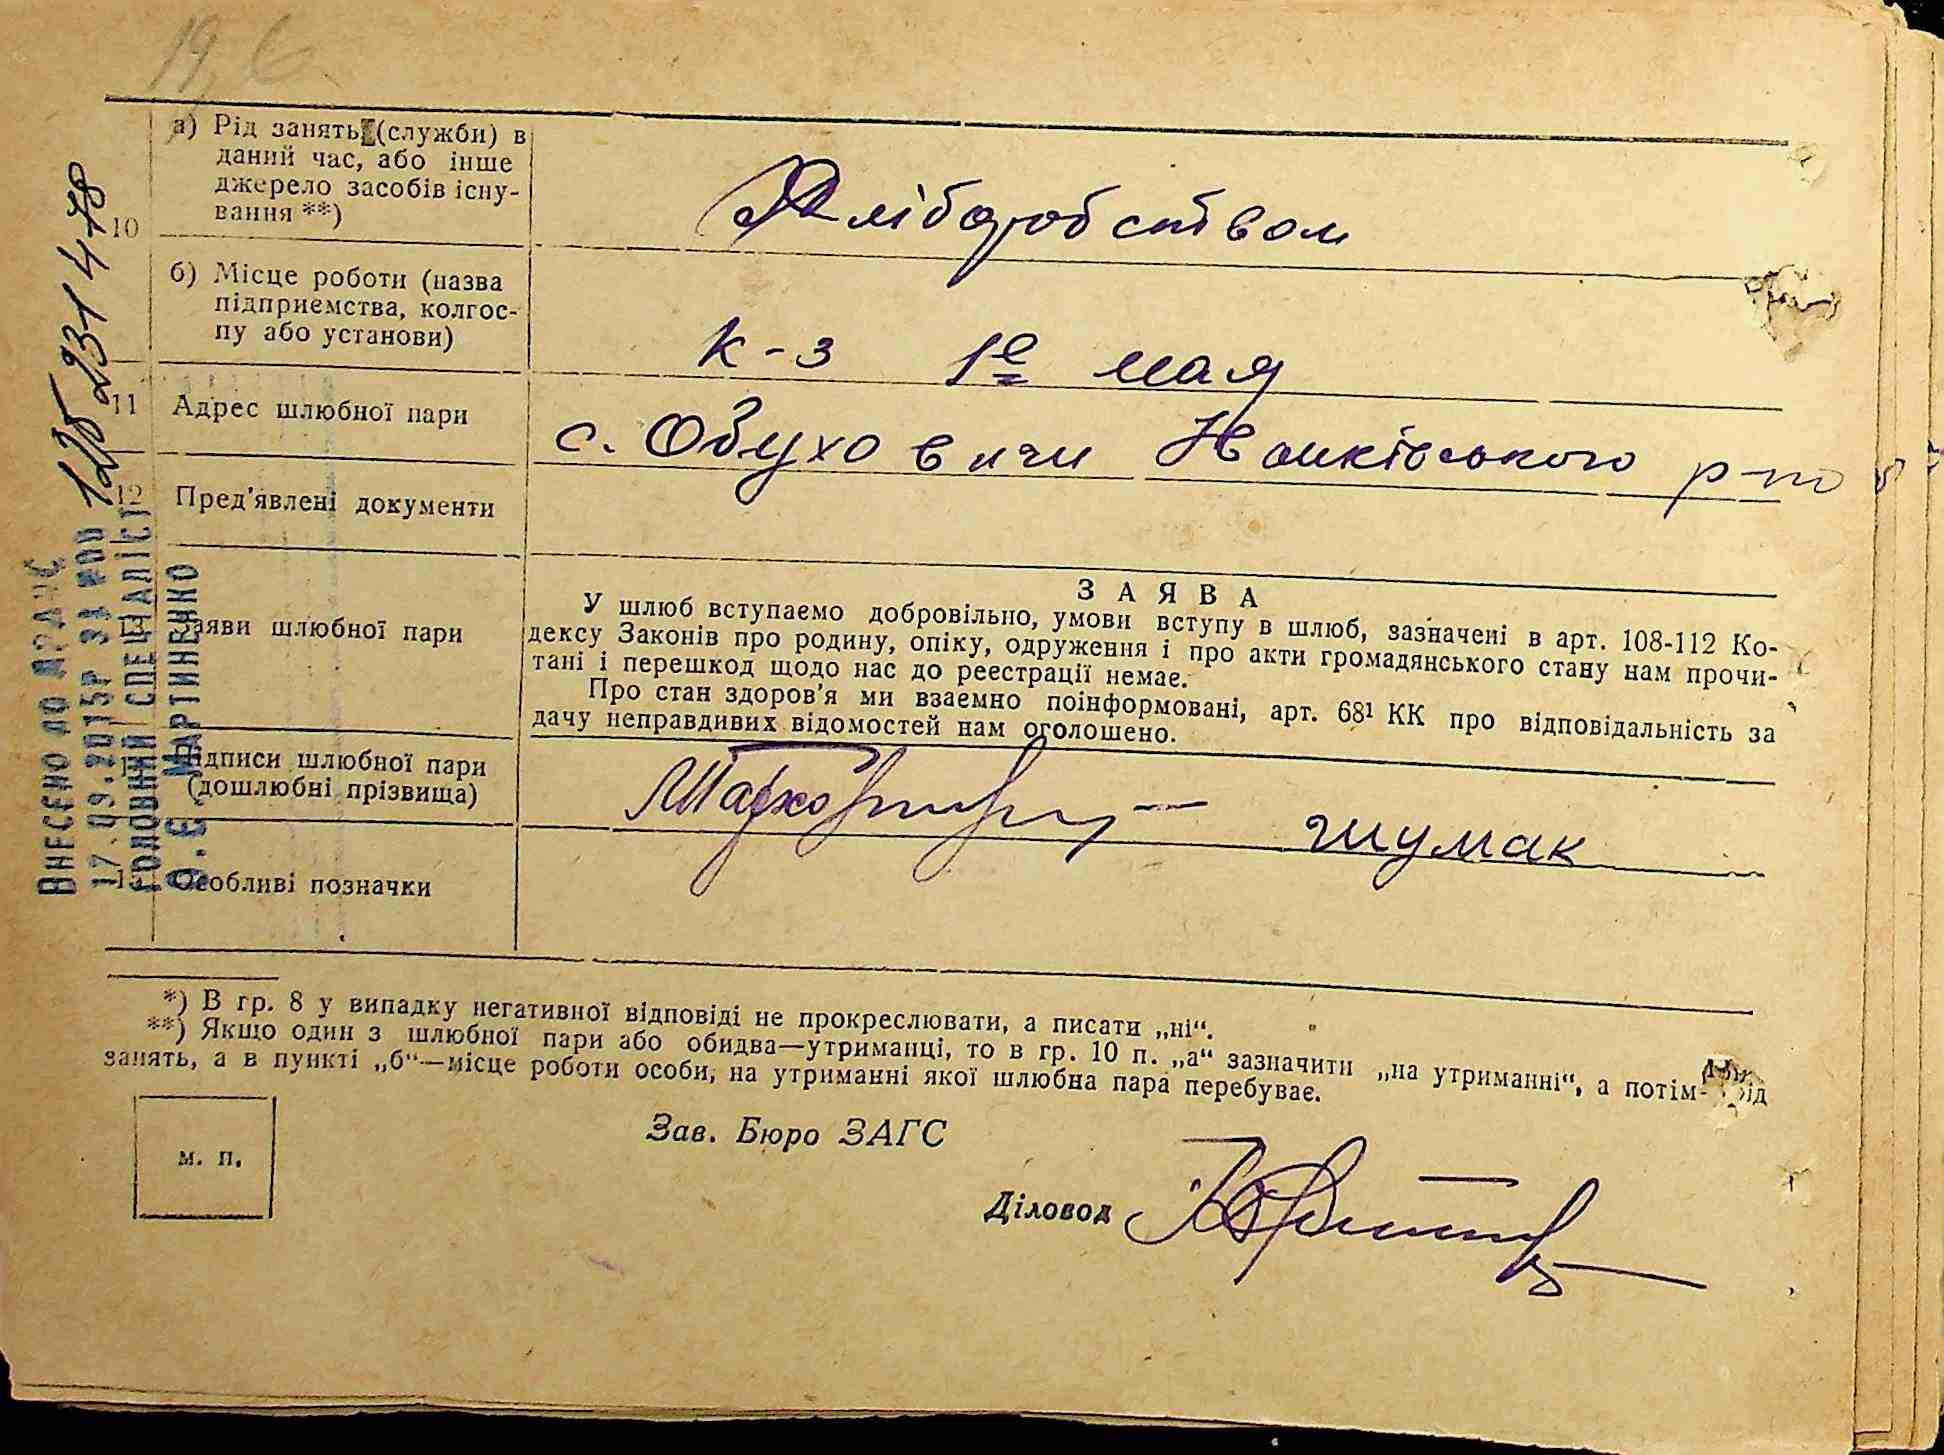 19, 6
а) Рід занять (служби) в
даний час, або інше
джерело засобів існу-
вання **)
10
Хліборобством
б) Місце роботи (назва
підприємства, колгос-
пу або установи)
к-з 1е мая
11 Адрес шлюбної пари
с. Обуховичи Іванківського р-ну
12 Пред'явлені документи
Заяви шлюбної пари
ЗАЯВА
У шлюб вступаємо добровільно, умови вступу в шлюб, зазначені в арт. 108-112 Ко-
дексу Законів про родину, опіку, одруження і про акти громадянського стану нам прочи-
тані і перешкод щодо нас до реєстрації немає.
Про стан здоров'я ми взаємно поінформовані, арт. 68¹ КК про відповідальність за
дачу неправдивих відомостей нам оголошено.
Підписи шлюбної пари
(дошлюбні прізвища)
Шумак
15 Особливі позначки
*) В гр. 8 у випадку негативної відповіді не прокреслювати, а писати „ні“.
**) Якщо один з шлюбної пари або обидва—утриманці, то в гр. 10 п. „а“ зазначити „на утриманні“, а потім рід
занять, а в пункті „б“—місце роботи особи, на утриманні якої шлюбна пара перебуває.
Зав. Бюро ЗАГС
м. п.
Діловод
ВНЕСЕНО ДО ДРАЦС
17.09.2015Р ЗА №00 125231478
ГОЛОВНИЙ СПЕЦІАЛІСТ
О.Є. МАРТИНЕНКО